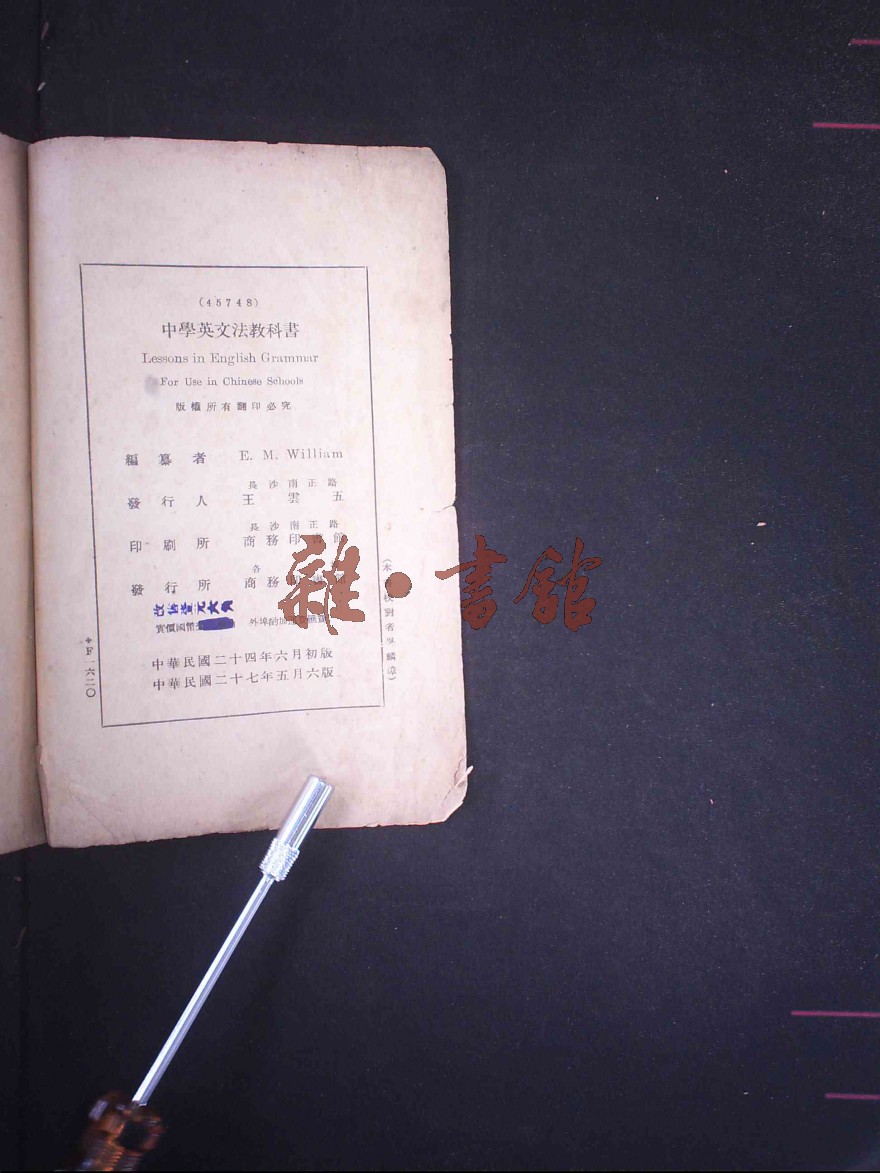 (45748)
中學英文法教科書
Lessons in English Grammar
For Use in Chinese Schools
版權所有翻印必究
編纂者 E. M. William
長沙南正路
發行人 王雲五
長沙南正路
印刷所 商務印書館
各
發行所 商務
改售壹元大角
實價國幣
外埠酌加
中華民國二十四年六月初版
中華民國二十七年五月六版
*F一六二〇
(本 校對者 麟
雜·書館